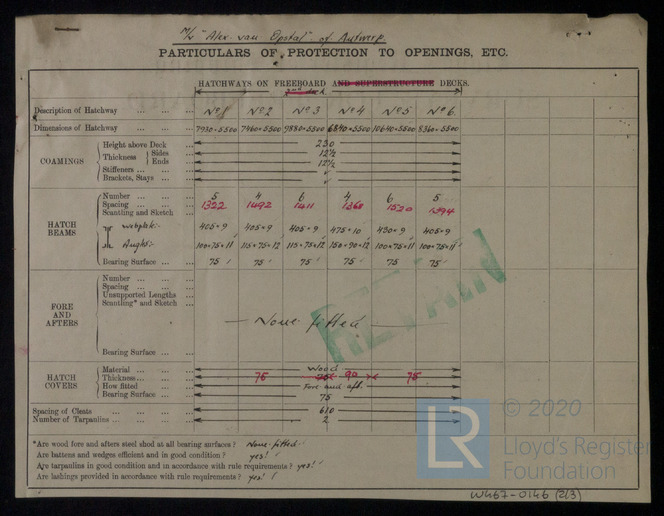 M/V "Alex. van Opstal" of Antwerp.
PARTICULARS OF PROTECTION TO OPENINGS, ETC.
HATCHWAYS ON FREEBOARD AND SUPERSTRUCTURE DECKS.
2nd deck
Description of Hatchway ... ... ... Nº 1 Nº 2 Nº 3 Nº 4 Nº 5 Nº 6
Dimensions of Hatchway ... ... ... 7930×5500 7460×5500 9880×5500 6840×5500 10640×5500 8360×5500
COAMINGS
Height above Deck ... 230
Thickness Sides ... 12½
Ends ... 12½
Stiffeners ... ... ... ✓
Brackets, Stays ... ... ✓
HATCH BEAMS
Number ... ... ... 5 4 6 4 6 5
Spacing ... ... ... 1322 1492 1411 1368 1520 1394
Scantling and Sketch ...
webplate:- 405×9 405×9 405×9 475×10 430×9 405×9
Angles:- 100×75×11 115×75×12 115×75×12 150×90×12 100×75×11 100×75×11
Bearing Surface ... ... 75 75 75 75 75 75
FORE AND AFTERS
Number ... ... ...
Spacing ... ... ...
Unsupported Lengths ...
Scantling* and Sketch ...
None fitted
Bearing Surface ... ...
HATCH COVERS
Material ... ... ... Wood
Thickness ... ... ... 75 75 90 75
How fitted ... ... Fore and aft.
Bearing Surface ... ... 75
Spacing of Cleats ... ... ... ... 610
Number of Tarpaulins ... ... ... ... 2
*Are wood fore and afters steel shod at all bearing surfaces? None fitted
Are battens and wedges efficient and in good condition? yes!
Are tarpaulins in good condition and in accordance with rule requirements? yes!
Are lashings provided in accordance with rule requirements? yes!
RETAIN
LR
© 2020
Lloyd's Register
Foundation
W467-0146 (2/3)